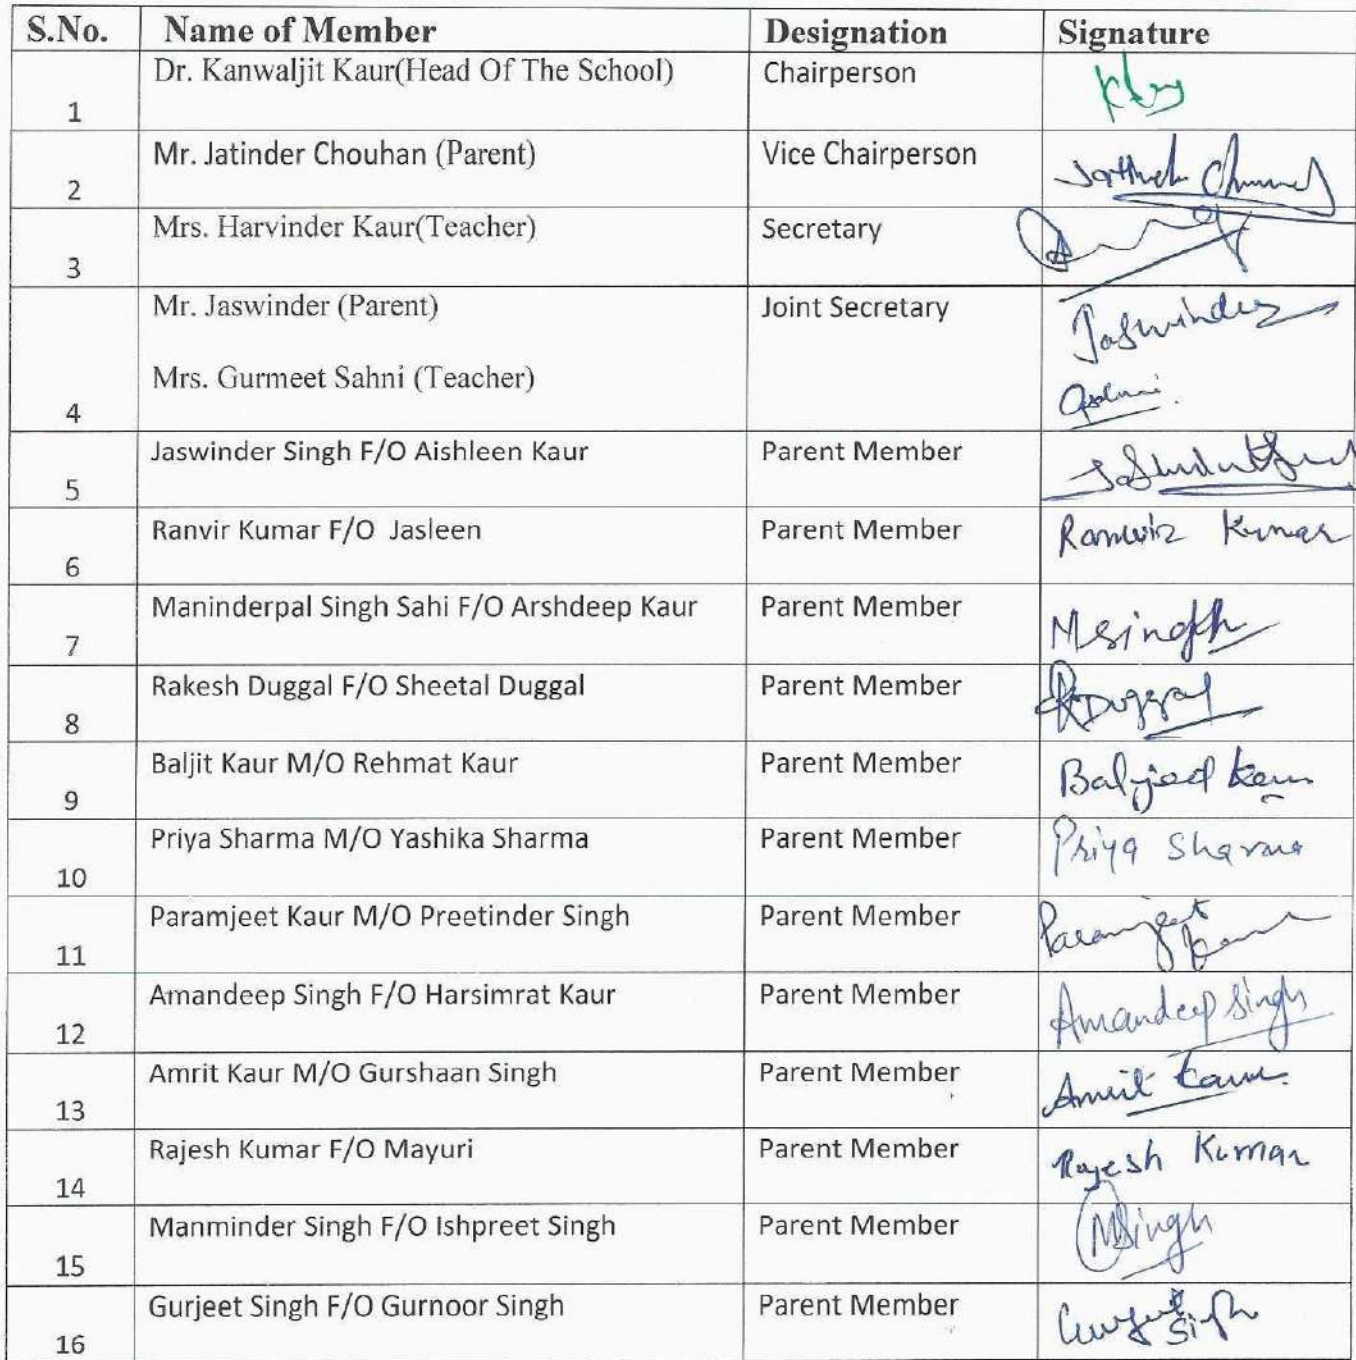 S.No. Name of Member Designation Signature
1 Dr. Kanwaljit Kaur(Head Of The School) Chairperson
2 Mr. Jatinder Chouhan (Parent) Vice Chairperson
3 Mrs. Harvinder Kaur(Teacher) Secretary
Mr. Jaswinder (Parent) Joint Secretary Jaswinder
4 Mrs. Gurmeet Sahni (Teacher)
5 Jaswinder Singh F/O Aishleen Kaur Parent Member
6 Ranvir Kumar F/O Jasleen Parent Member Ranvir Kumar
7 Maninderpal Singh Sahi F/O Arshdeep Kaur Parent Member MSingh
8 Rakesh Duggal F/O Sheetal Duggal Parent Member RDuggal
9 Baljit Kaur M/O Rehmat Kaur Parent Member Baljeed Kaur
10 Priya Sharma M/O Yashika Sharma Parent Member Priya Sharma
11 Paramjeet Kaur M/O Preetinder Singh Parent Member Paramjeet Kaur
12 Amandeep Singh F/O Harsimrat Kaur Parent Member Amandeep Singh
13 Amrit Kaur M/O Gurshaan Singh Parent Member Amrit Kaur.
14 Rajesh Kumar F/O Mayuri Parent Member Rajesh Kumar
15 Manminder Singh F/O Ishpreet Singh Parent Member MSingh
16 Gurjeet Singh F/O Gurnoor Singh Parent Member Gurjeet Singh